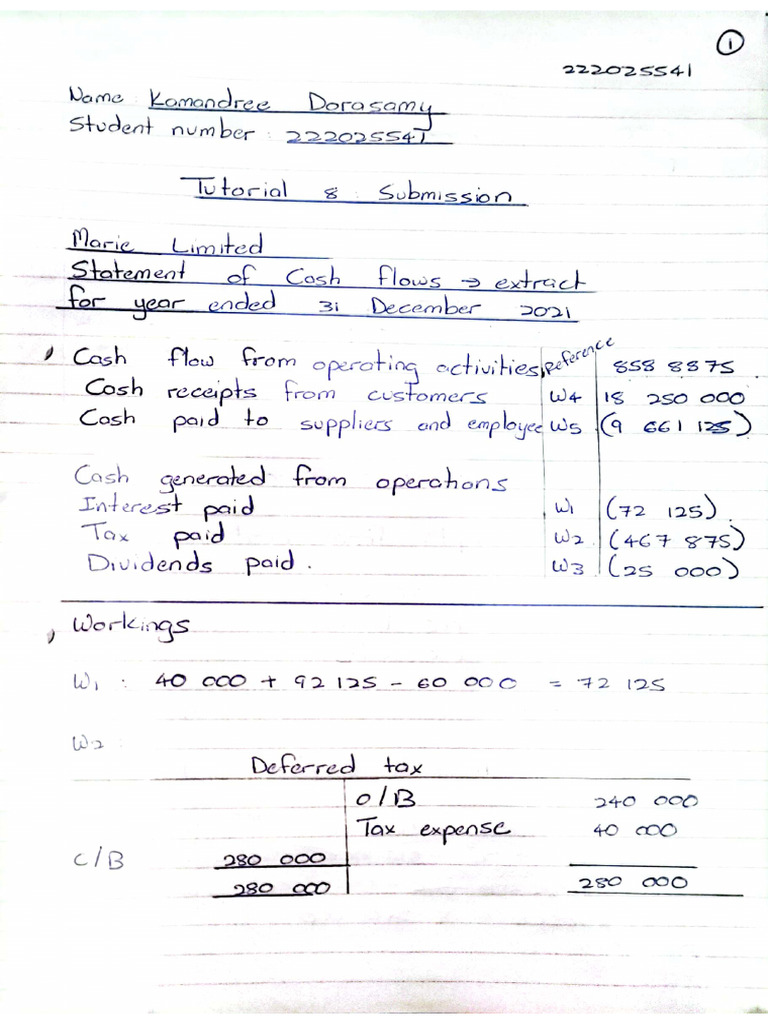 1
222025541
Name : Kamandree Dorasamy
Student number : 222025541
Tutorial 8 : Submission
Marie Limited
Statement of Cash flows → extract
for year ended 31 December 2021
Cash flow from operating activities Reference 858 8875
Cash receipts from customers W4 18 250 000
Cash paid to suppliers and employee W5 (9 661 125)
Cash generated from operations
Interest paid W1 (72 125)
Tax paid W2 (467 875)
Dividends paid. W3 (25 000)
Workings
W1 : 40 000 + 92 125 - 60 000 = 72 125
W2 :
Deferred tax
O/B 240 000
Tax expense 40 000
C/B 280 000
280 000 280 000